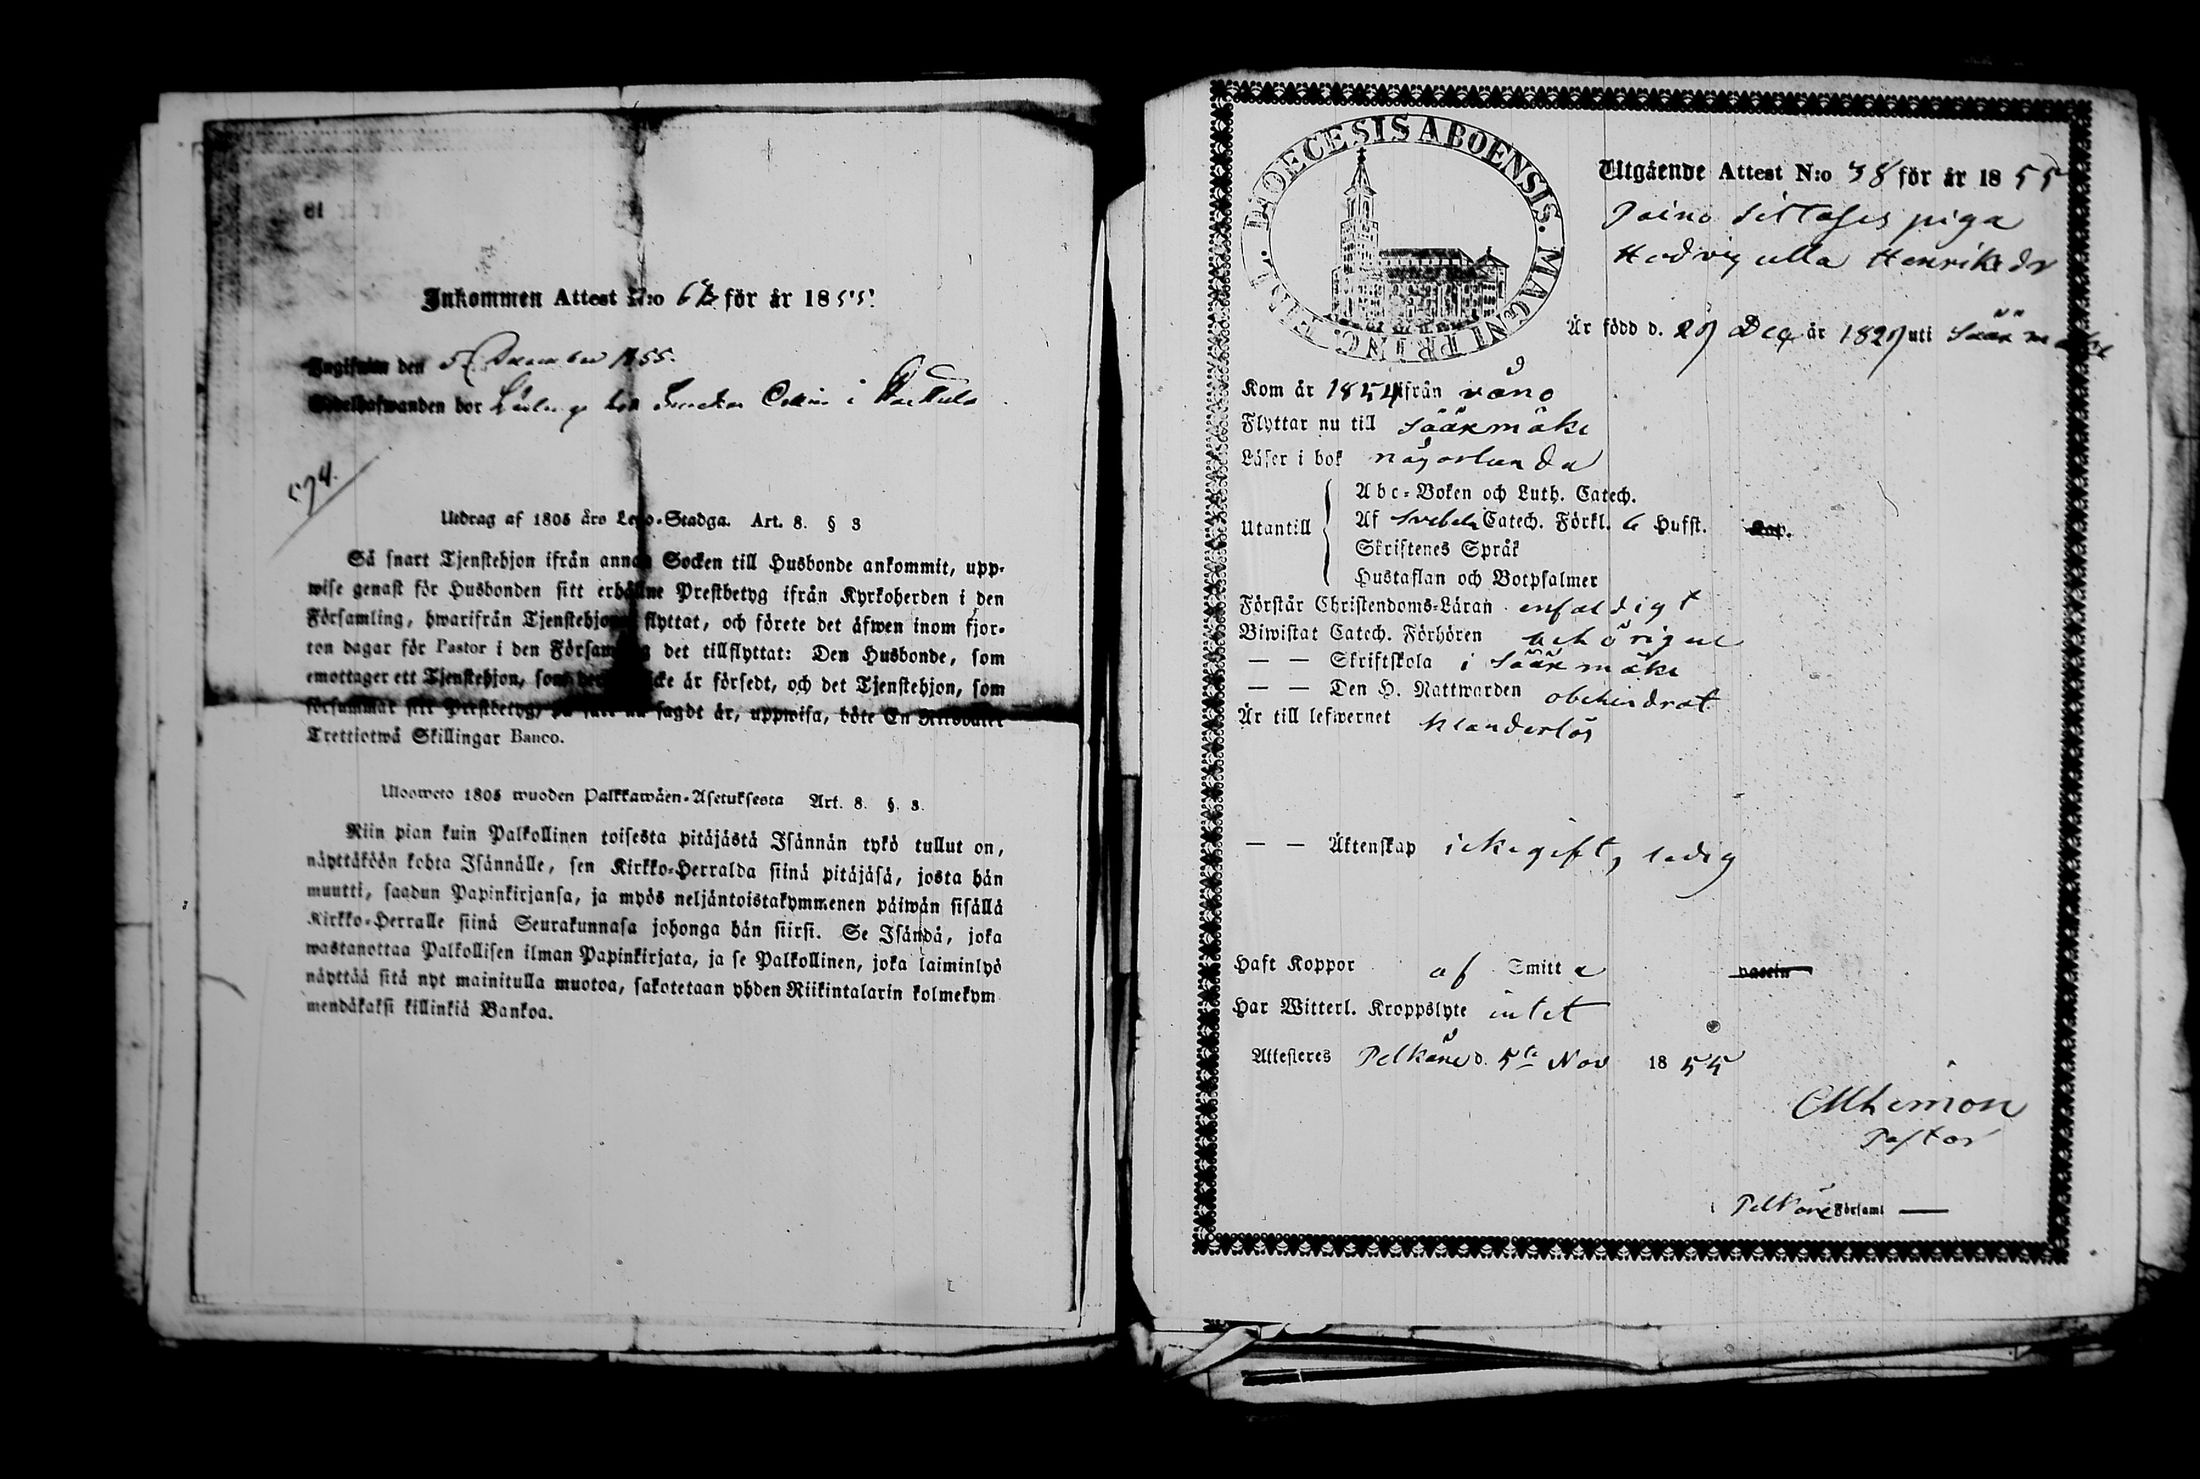 Inkommen Attest N:o 62 för år 1855.
Ingifwen den 5 December 1855.
Innehafwanden bor hos i
574.
Utdrag af 1805 års Lego-Stadga. Art. 8. § 3
Så snart Tjenstehjon ifrån annan Socken till Husbonde ankommit, upp-
wise genast för Husbonden sitt erhållne Prestbetyg ifrån Kyrkoherden i den
Församling, hwarifrån Tjenstehjonet flyttat, och förete det äfwen inom fjor-
ton dagar för Pastor i den Församling det tillflyttat: Den Husbonde, som
emottager ett Tjenstehjon, som icke är försedt, och det Tjenstehjon, som
försummar sitt Prestbetyg, på sätt nu sagdt är, uppwisa, böte En Riksdaler
Trettiotwå Skillingar Banco.
Uloosweto 1805 wuoden Palkkawäen-Asetuksesta Art. 8. §. 3.
Niin pian kuin Palkollinen toisesta pitäjästä Isännän tykö tullut on,
näyttäköön kohta Isännälle, sen Kirkko-Herralda siinä pitäjäsä, josta hän
muutti, saadun Papinkirjansa, ja myös neljäntoistakymmenen päiwän sisällä
Kirkko-Herralle siinä Seurakunnasa johonga hän siirsi. Se Isändä, joka
wastanottaa Palkollisen ilman Papinkirjata, ja se Palkollinen, joka laiminlyö
näyttää sitä nyt mainitulla muotoa, sakotetaan yhden Riikintalarin kolmekym
mendäkaksi killinkiä Bankoa.
DIOECESIS ABOENSIS. MAGNI PRINC. FINL.
Utgående Attest N:o 38 för år 1855
piga
Hedvig Ulla Henriksdr
Är född d. 29 Dec år 1829 uti Sääxmäki
Kom år 1854 ifrån
Flyttar nu till Sääxmäki
Läser i bok någorlunda
Utantill
Abc-Boken och Luth. Catech.
Af Svebeli Catech. Förkl. 6 Hufst. Kap.
Skriftenes Språk
Hustaflan och Botpsalmer
Förstår Christendoms-Läran enfaldigt
Biwistat Catech. Förhören behörigen
— — Skriftskola i Sääxmäki
— — Den H. Nattwarden obehindrat
Är till lefwernet klanderlös
— — Äktenskap icke gift, ledig
Haft Koppor af Smitta vaccin
Har Witterl. Kroppslyte intet
Attesteres Pelkäne d. 5te Nov 1855
Pastor
i Pelkäne Församl —